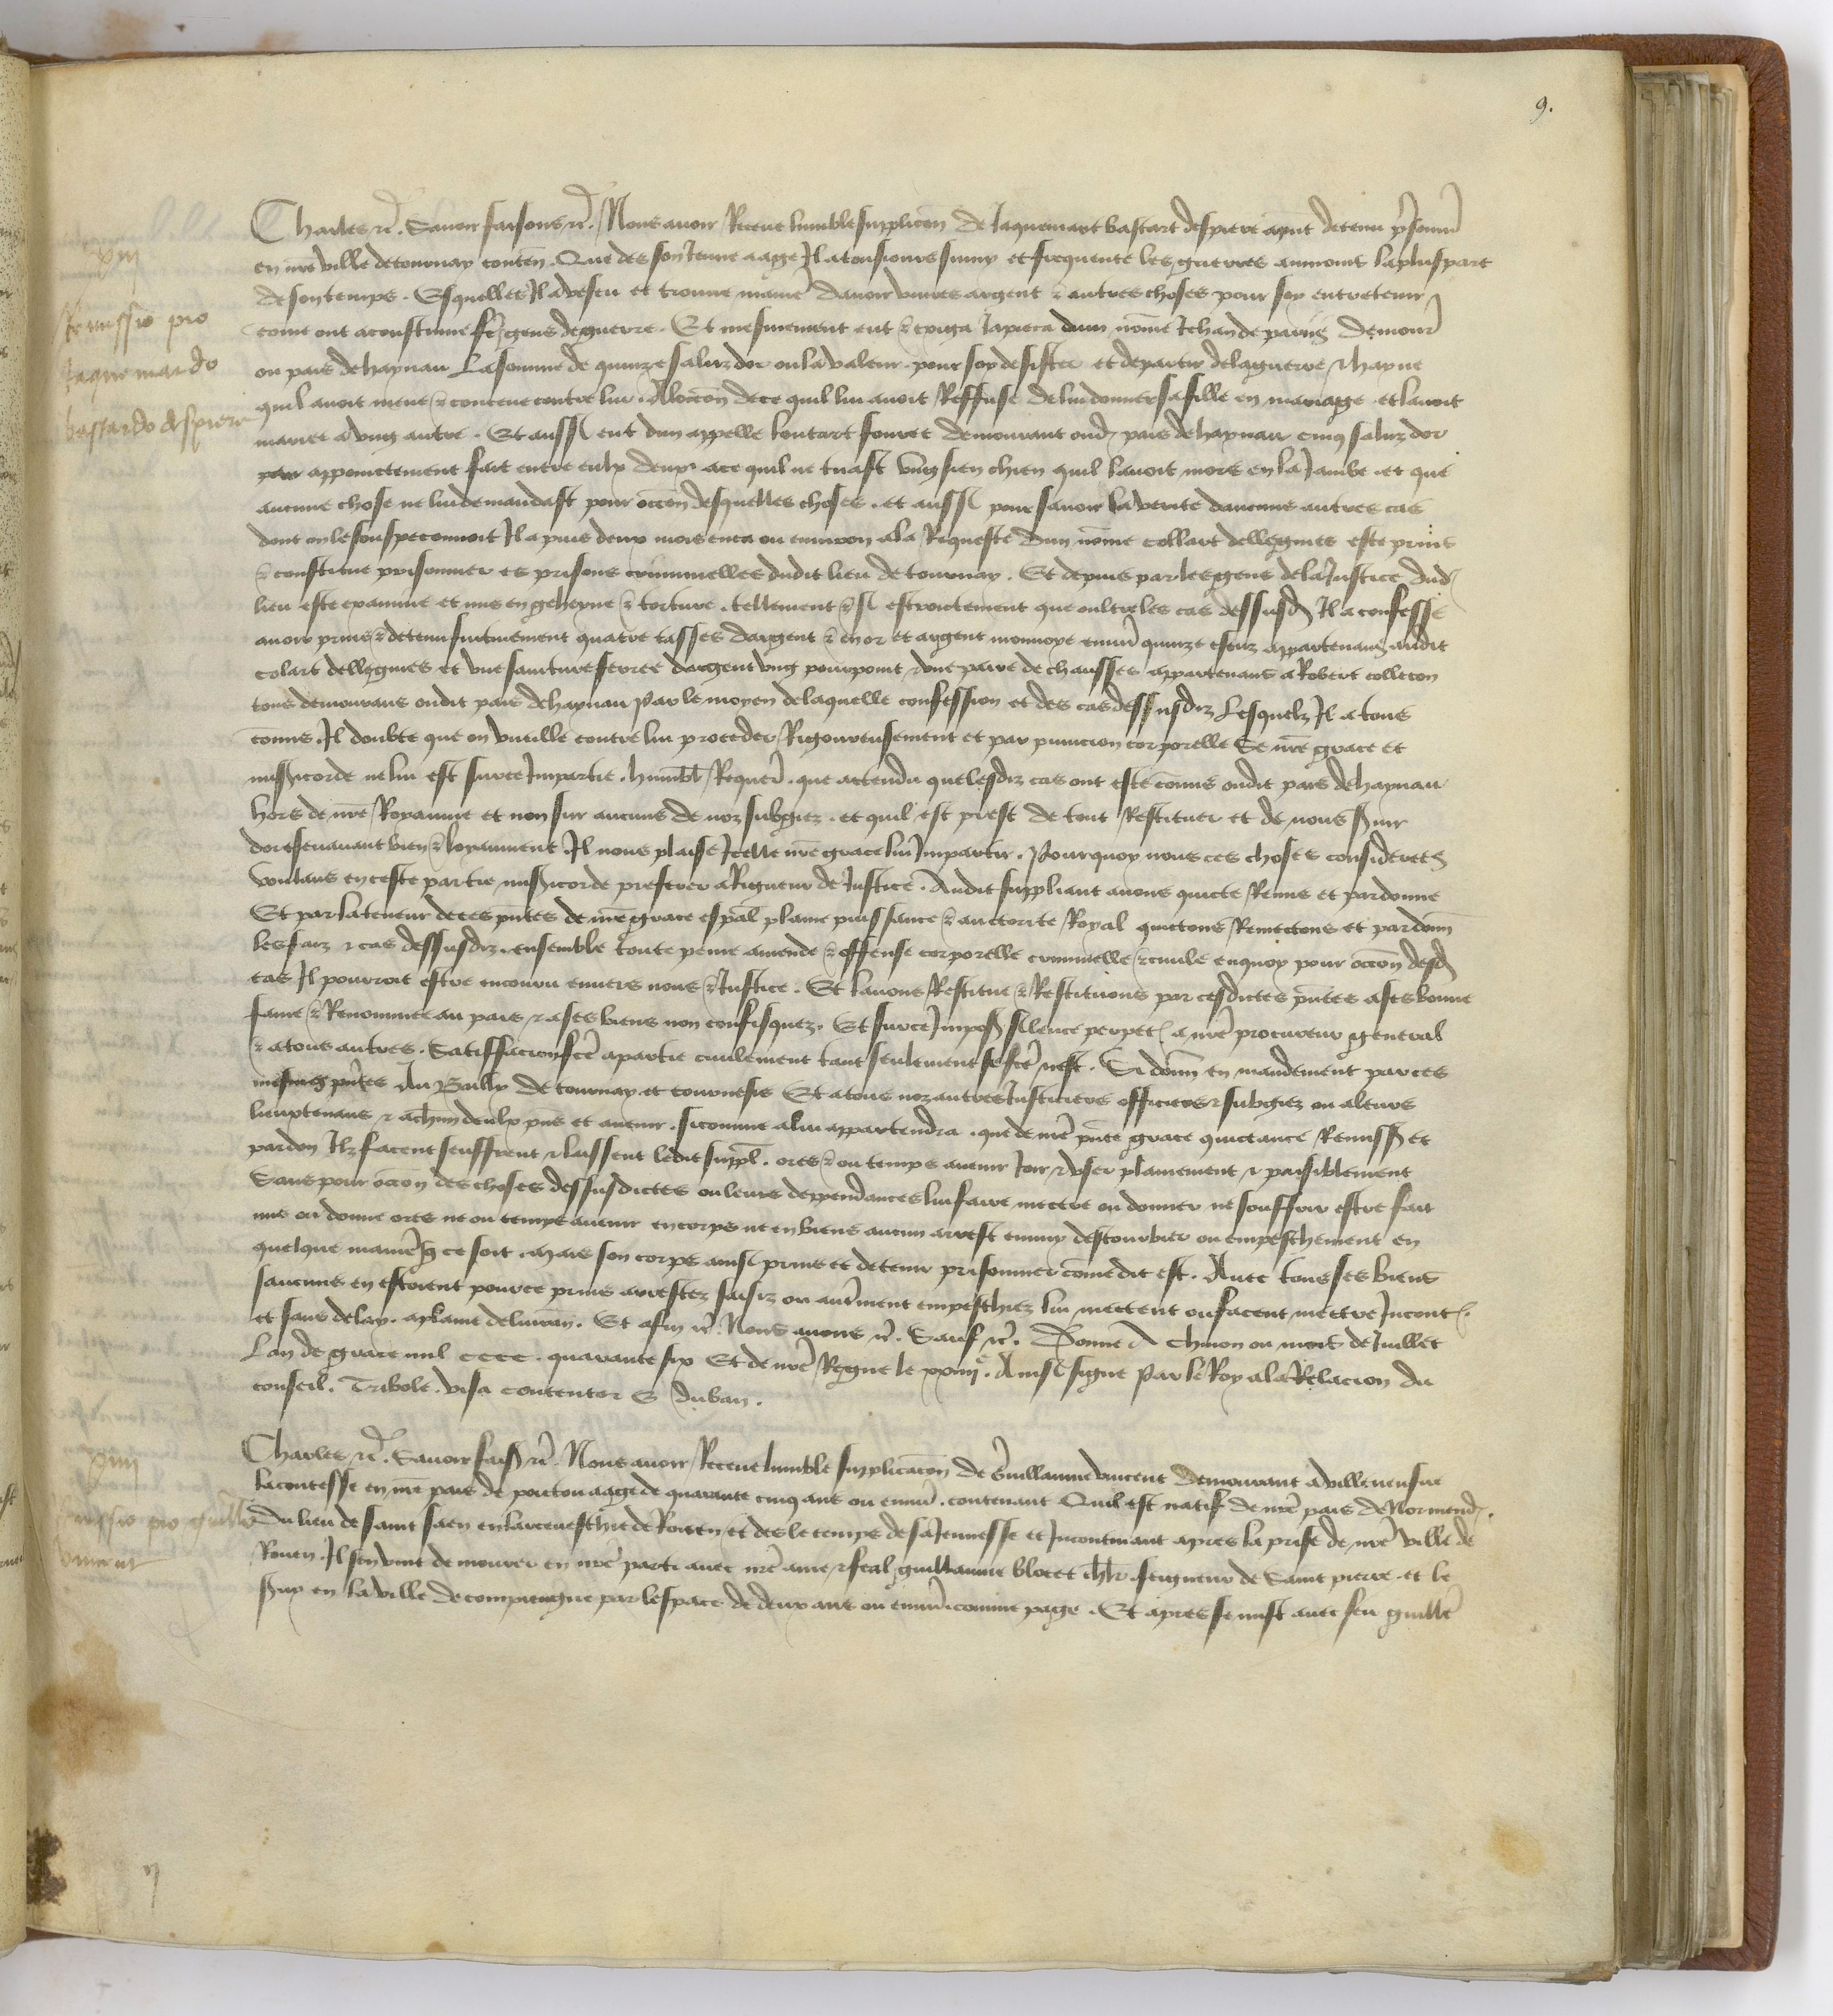 9.
xiii
Remissio pro
Jaquemardo
bastardo despiere
Charles etc. Savoir faisons etc. Nous avoir Receue lumble supplicon de Jaquemart bastart despiere apnt detenu prisonn
en nre ville de tournay conten. Que des son Jeune aage Il a tousiours suiuy et frequente les guerres aumoins la plus part
de son temps. Esquelles Il a vescu et trouue maniere dauoir viures argent et autres choses pour soy entretenir
come ont acoustume fe gens de guerre. Et mesmement eut et exiga Japieca dun nome Jehan de paris demour
ou pais de haynau La somme de quinze salus dor ou la valeur pour soy desister et departir de la guerre et hayne
quil auoit meue et conceue contre lui. A locon de ce quil lui auoit Reffuse de lui donner sa fille en mariage et lauoit
mariee a vng autre. Et aussi eut dun appelle lontart fouret demourant oud pais de haynau cinq saluz dor
par appoinctement fait entre eulx deux a ce quil ne tuast vng sien chien quil lauoit mors en la Jambe et que
aucune chose ne lui demandast pour occon desquelles choses. et aussi pour sauoir la verite daucuns autres cas
dont on le souspeconnoit Il a puis deux mois enca ou enuiron a la Requeste dun nome collart dellegnies este prins
et constitue prisonnier es prisons criminelles dudit lieu de tournay. Et depuis par les gens de la Justice dud
lieu este examine et mis en geheyne et torture. tellement et si estroictement que oultre les cas dessusd Il a confesse
auoir prins et detenu furtiuement quatre tasses dargent et en or et argent monnoye enuir quinze escuz appartenans audit
colart dellegnies et vne sainture ferree dargent vng pourpoint et vne paire de chausses appartenans a Robert colleton
tous demourans oudit pais de haynau Par le moyen de laquelle confession et des cas dessusdiz Lesquelz Il a tous
comis. Il doubte que on vueille contre lui proceder Rigoureusement et par punicion corporelle Se nre grace et
misicorde ne lui est sur ce Impartie. humbl Requer. que attendu que lesdiz cas ont este comis oudit pais de haynau
hors de nre Royaume et non sur aucuns de noz subgiez. et quil est prest de tout Restituer et de nous seruir
doresenauant bien et loyaument Il nous plaise Icelle nre grace lui Impartir. Pourquoy nous ces choses considerees
voulans en ceste partie misicorde preferer a Rigueur de Justice. Audit suppliant auons quicte Remis et pardonne
Et par la teneur de ces pntes de nre grace espal plaine puissance et auctorite Royal quictons Remectons et pardonn
les faiz et cas dessusdiz. ensemble toute peine amende et offense corporelle criminelle et ciuile en quoy pour occon desd
cas Il pourroit estre encouru enuers nous et Justice. Et lauons Restitue et Restituons par cesdictes pntes a ses bonne
fame et Renommee au pais et a ses biens non confisquez. Et sur ce Imposs silence perpet a nre procureur general
et a tous autres. Satisfacion fce a partie ciuilement tant seulement se fce nest. Si donn en mandement par ces
mesmes pntes Au Bailly de tournay et tournesis Et a tous noz autres Justiciers officiers et subgiez ou a leurs
lieuxtenans et achun deulx pns et auenir. sicomme a lui appartendra. que de nre pnte grace quictance Remiss et
pardon Ilz facent seuffrent et laissent ledit suppl. ores et ou temps auenir Joir et vser plainement et paisiblement
Sans pour occon des choses dessusdictes ou leurs dependances lui faire mectre ou donner ne souffrir estre fait
mis ou donne ores ne ou temps auenir en corps ne en biens aucun arrest ennuy destourbier ou empeschement en
quelque maniere que ce soit. Mais son corps ainsi prins et detenu prisonnier come dit est. Auec tous ses biens
saucuns en estoient pource prins arrestez saisiz ou autrement empeschiez lui mectent ou facent mectre Incont
et sans delay. a plaine deliuran. Et afin etc. Nous auons etc. Sauf etc. Donne A Chinon ou mois de Juillet
Lan de grace mil cccc. quarante six Et de nre Regne le xxiiiie. Ainsi signe Par le Roy a la Relacion du
conseil. Tribole. visa contentor E duban.
xiiii
Remissio pro Guillo
vincent
Charles etc. Sauoir faiss etc. Nous auoir Receue lumble supplicacon de Guillaume vincent demourant a villeneusue
la contesse en nre pais de poictou aage de quarante cinq ans ou enuir. contenant Quil est natif de nre pais de Normend.
Du lieu de saint saen en larceueschie de Rouen et des le temps de sa Jeunesse et Incontinant apres la prise de nre ville de
Rouen. Il sen vint demourer en nre parti auec nre ame et feal guillaume blocet chlr. seigneur de Saint pierre. et le
seruy en la ville de compiengne par lespace de deux ans ou enuir. comme page. Et apres se mist auec feu guille